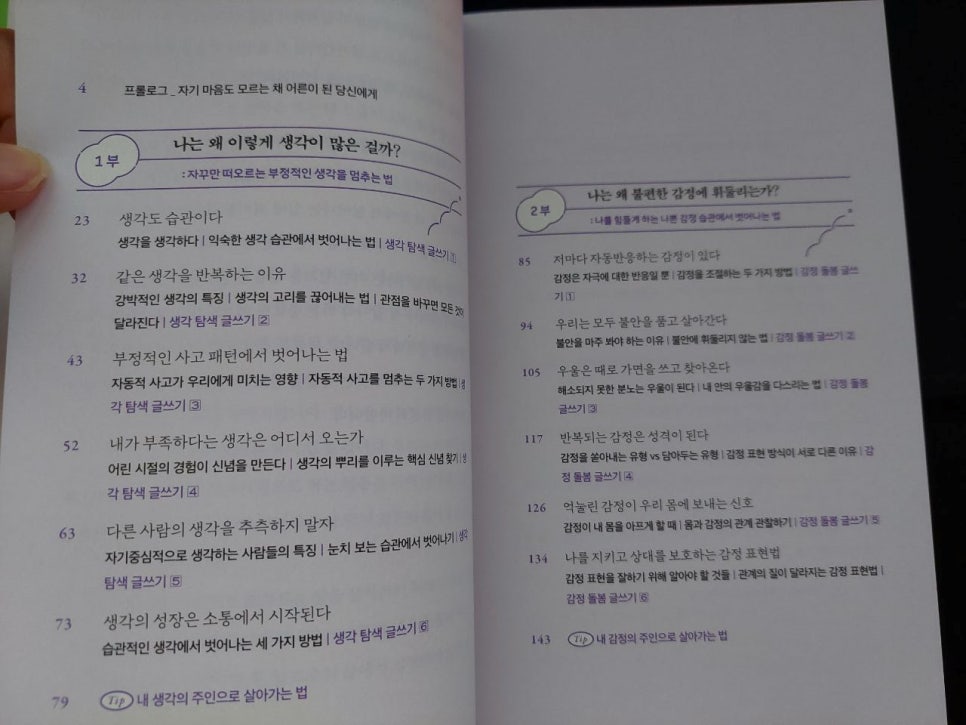 4 프롤로그 _ 자기 마음도 모르는 채 어른이 된 당신에게
1부 나는 왜 이렇게 생각이 많은 걸까?
: 자꾸만 떠오르는 부정적인 생각을 멈추는 법
23 생각도 습관이다
생각을 생각하다 | 익숙한 생각 습관에서 벗어나는 법 | 생각 탐색 글쓰기 ①
32 같은 생각을 반복하는 이유
강박적인 생각의 특징 | 생각의 고리를 끊어내는 법 | 관점을 바꾸면 모든 것이
달라진다 | 생각 탐색 글쓰기 ②
43 부정적인 사고 패턴에서 벗어나는 법
자동적 사고가 우리에게 미치는 영향 | 자동적 사고를 멈추는 두 가지 방법 | 생
각 탐색 글쓰기 ③
52 내가 부족하다는 생각은 어디서 오는가
어린 시절의 경험이 신념을 만든다 | 생각의 뿌리를 이루는 핵심 신념 찾기 | 생
각 탐색 글쓰기 ④
63 다른 사람의 생각을 추측하지 말자
자기중심적으로 생각하는 사람들의 특징 | 눈치 보는 습관에서 벗어나기 | 생각
탐색 글쓰기 ⑤
73 생각의 성장은 소통에서 시작된다
습관적인 생각에서 벗어나는 세 가지 방법 | 생각 탐색 글쓰기 ⑥
79 Tip 내 생각의 주인으로 살아가는 법
2부 나는 왜 불편한 감정에 휘둘리는가?
: 나를 힘들게 하는 나쁜 감정 습관에서 벗어나는 법
85 저마다 자동반응하는 감정이 있다
감정은 자극에 대한 반응일 뿐 | 감정을 조절하는 두 가지 방법 | 감정 돌봄 글쓰
기 ①
94 우리는 모두 불안을 품고 살아간다
불안을 마주 봐야 하는 이유 | 불안에 휘둘리지 않는 법 | 감정 돌봄 글쓰기 ②
105 우울은 때로 가면을 쓰고 찾아온다
해소되지 못한 분노는 우울이 된다 | 내 안의 우울감을 다스리는 법 | 감정 돌봄
글쓰기 ③
117 반복되는 감정은 성격이 된다
감정을 쏟아내는 유형 vs 담아두는 유형 | 감정 표현 방식이 서로 다른 이유 | 감
정 돌봄 글쓰기 ④
126 억눌린 감정이 우리 몸에 보내는 신호
감정이 내 몸을 아프게 할 때 | 몸과 감정의 관계 관찰하기 | 감정 돌봄 글쓰기 ⑤
134 나를 지키고 상대를 보호하는 감정 표현법
감정 표현을 잘하기 위해 알아야 할 것들 | 관계의 질이 달라지는 감정 표현법 |
감정 돌봄 글쓰기 ⑥
143 Tip 내 감정의 주인으로 살아가는 법